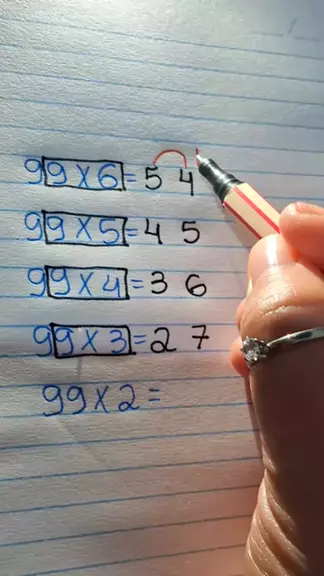 99 x 6 = 5 4
99 x 5 = 4 5
99 x 4 = 3 6
99 x 3 = 2 7
99 x 2 =